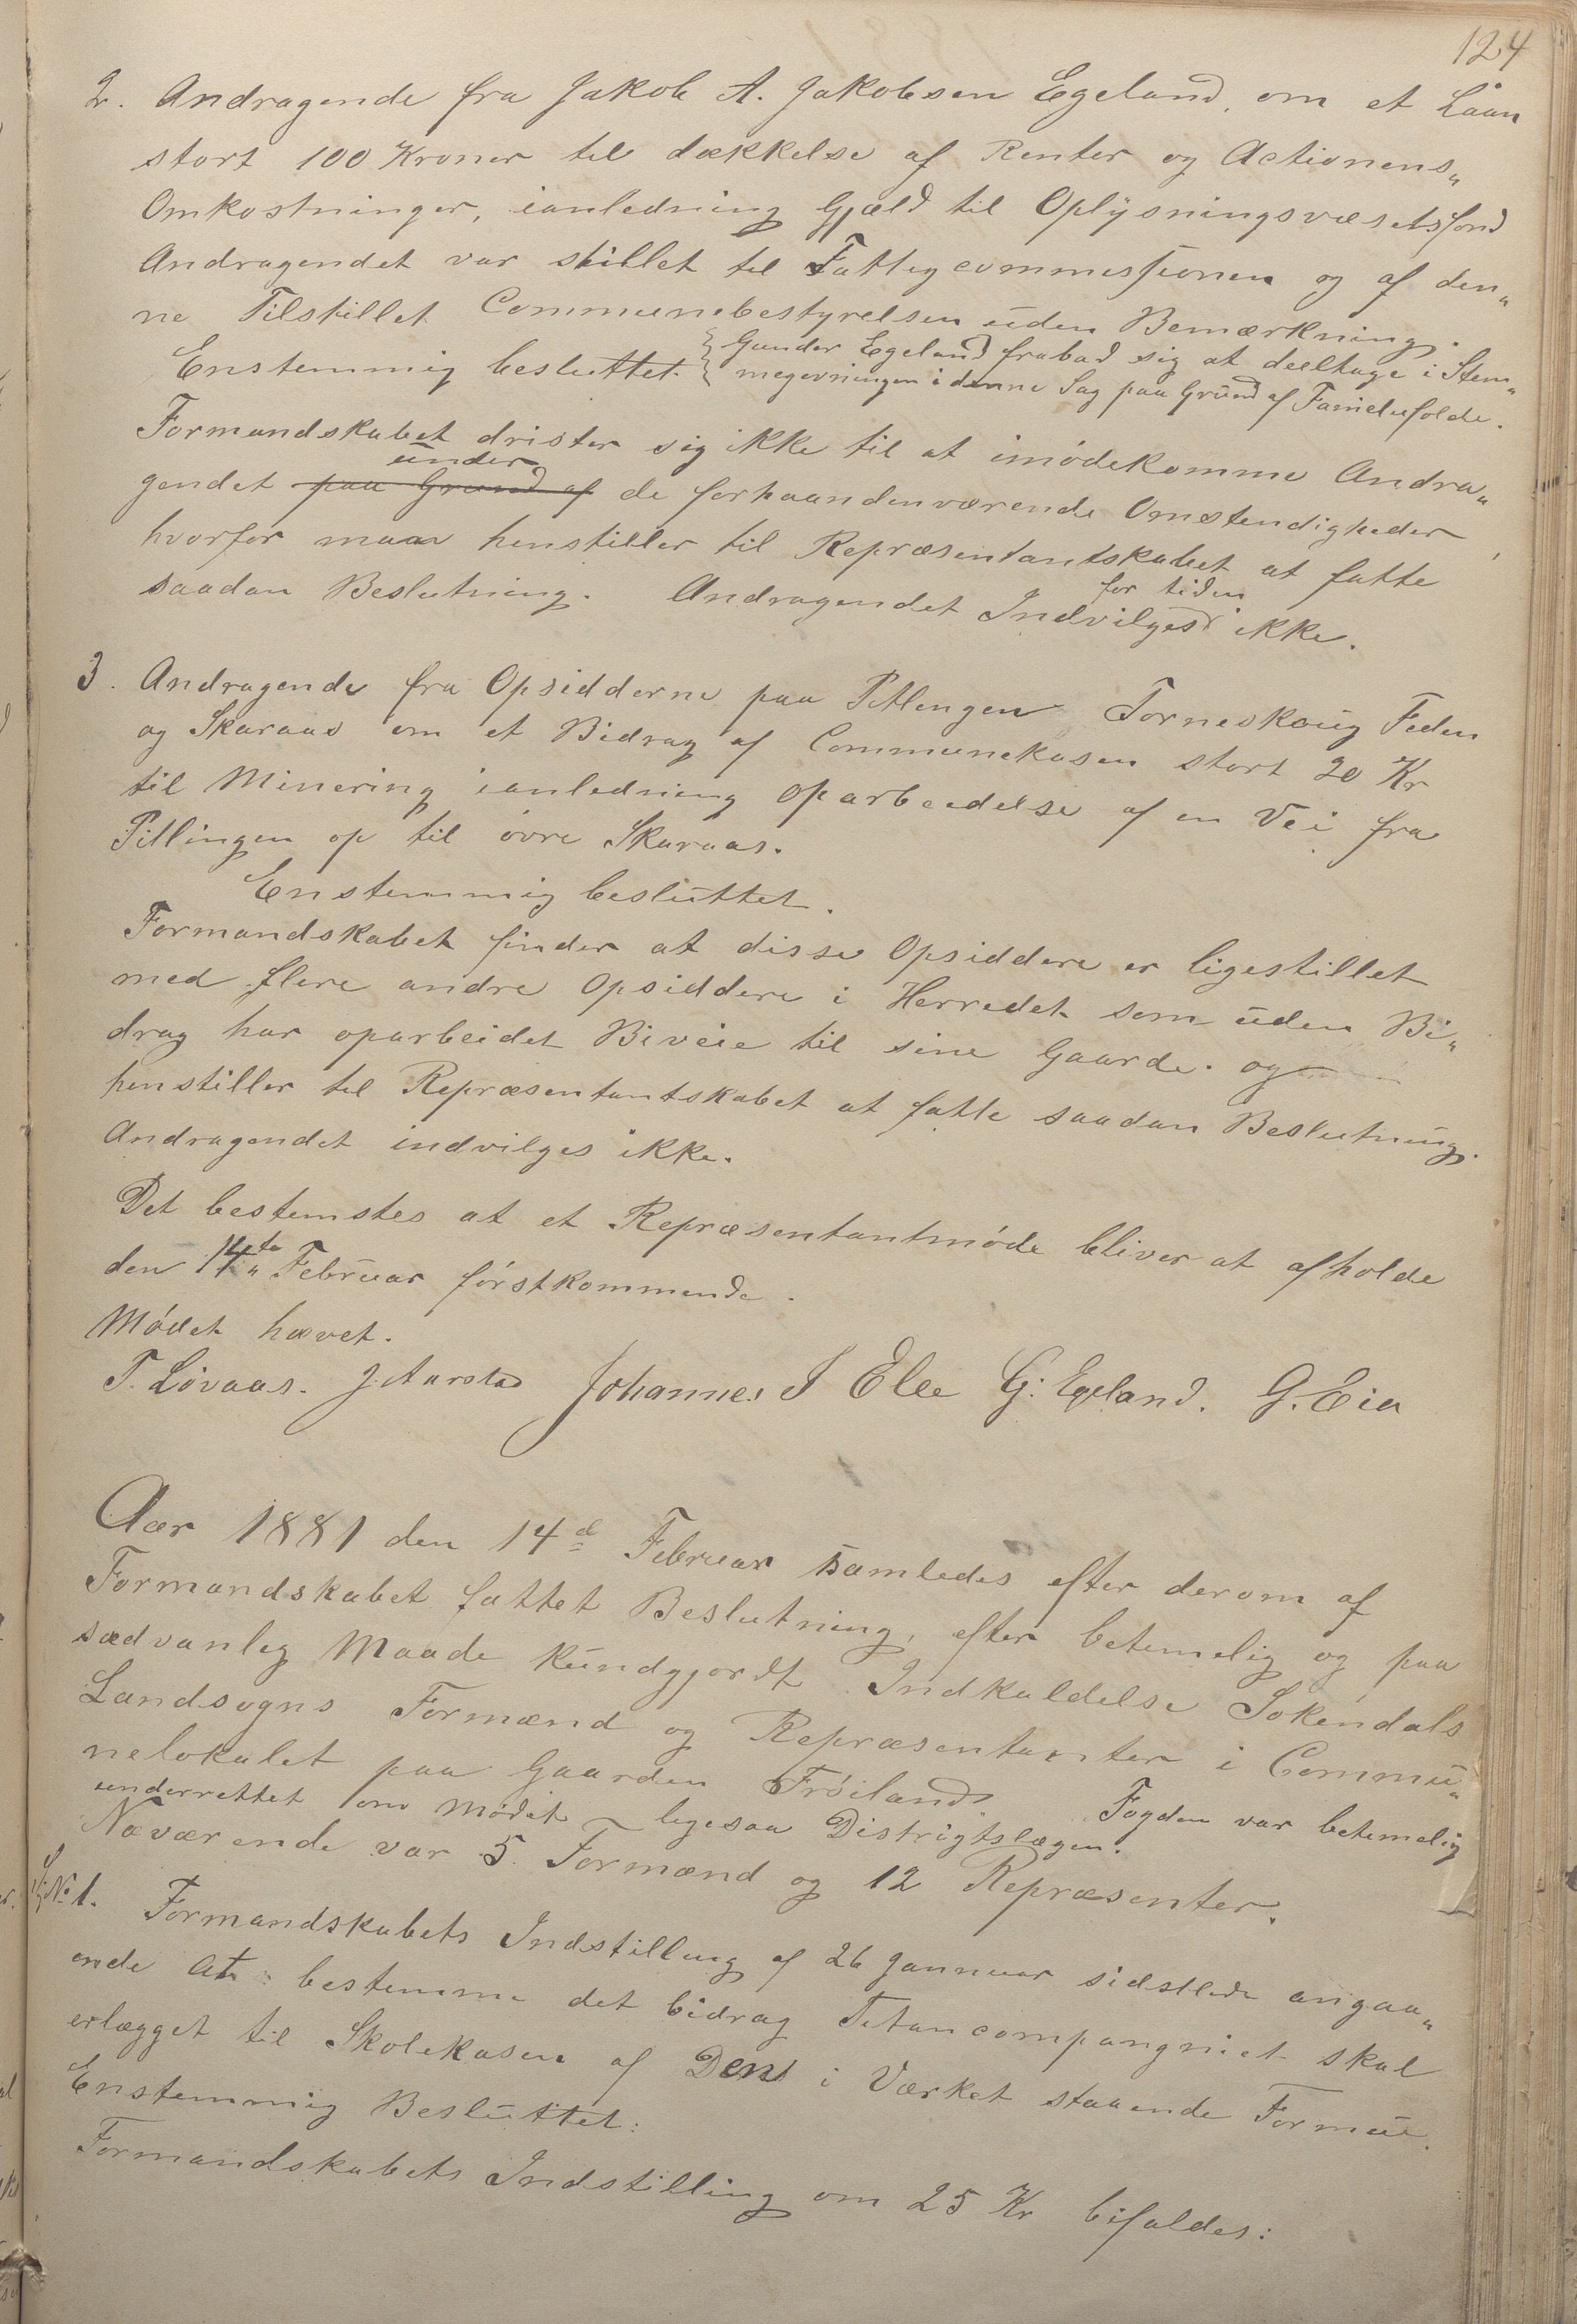 124
2. Andragende fra Jakob A. Jakobsen Egeland, om et Laan
stort 100 Kroner til dækkelse af Renter og Actionens„
Omkostninger, ianledning Gjæld til Oplysningsvæsetsfond
Andragendet var stillet til Fattigcommissionen og af den„
ne Tilstillet Communebestyrelsen uden Bemærkning.
Enstemmig besluttet. { Gunder Egeland frabad sig at deeltage i Stem„
{ megevningen i denne Sag paa Grund af Familiefolde.
Formandskabet drister sig ikke til at imødekomme Andra„
under
gendet paa Grund af de forhaandenværende Omstendigheder,
hvorfor man henstiller til Repræsentantskabet at fatte
for tiden
saadan Beslutning. Andragendet Indvilges ikke.
3. Andragende fra Opsidderne paa Pitlengen Torneskoug Feden
og Skaraas om et Bidrag af Communekasen stort 20 Kr
til Minering ianledning oparbeidelse af en Vei fra
Pitlingen op til øvre Skaraas.
Enstemmig besluttet.
Formandskabet finder at disse Opsiddere er ligestillet
med flere andre Opsiddere i Herredet som uden Bi„
drag har oparbeidet Biveie til sine Gaarde. og
henstiller til Repræsentantskabet at fatte saadan Beslutning.
Andragendet indvilges ikke.
Det bestemstes at et Repræsentantmøde bliver at afholde
den 14te Februar førstkommende.
Mødet hævet.
T. Løvaas. J. Aarstad Johannes J Elle G. Egeland. G. Eia
Aar 1881 den 14d Februar samledes efter derom af
Formandskabet fattet Beslutning, efter betimelig og paa
sædvanlig Maade kundgjordt Indkaldelse Sokendals
Landsogns Formænd og Repræsentanter i Commu„
nelokalet paa Gaarden Frøiland. Fogden var betimelig
underrettet om Mødet ligesaa Distrigtslægen.
Næværende var 5 Formænd og 12 Repræsenter.
No 1. Formandskabets Indstilling af 26 Jannuar sidstlede angaa„
ende at bestemme det bidrag Titancompangniet skal
erlægget til Skolekasen af Den i Værket staaende Formue.
Enstemmig Besluttet:
Formandskabets Indstilling om 25 Kr bifaldes: